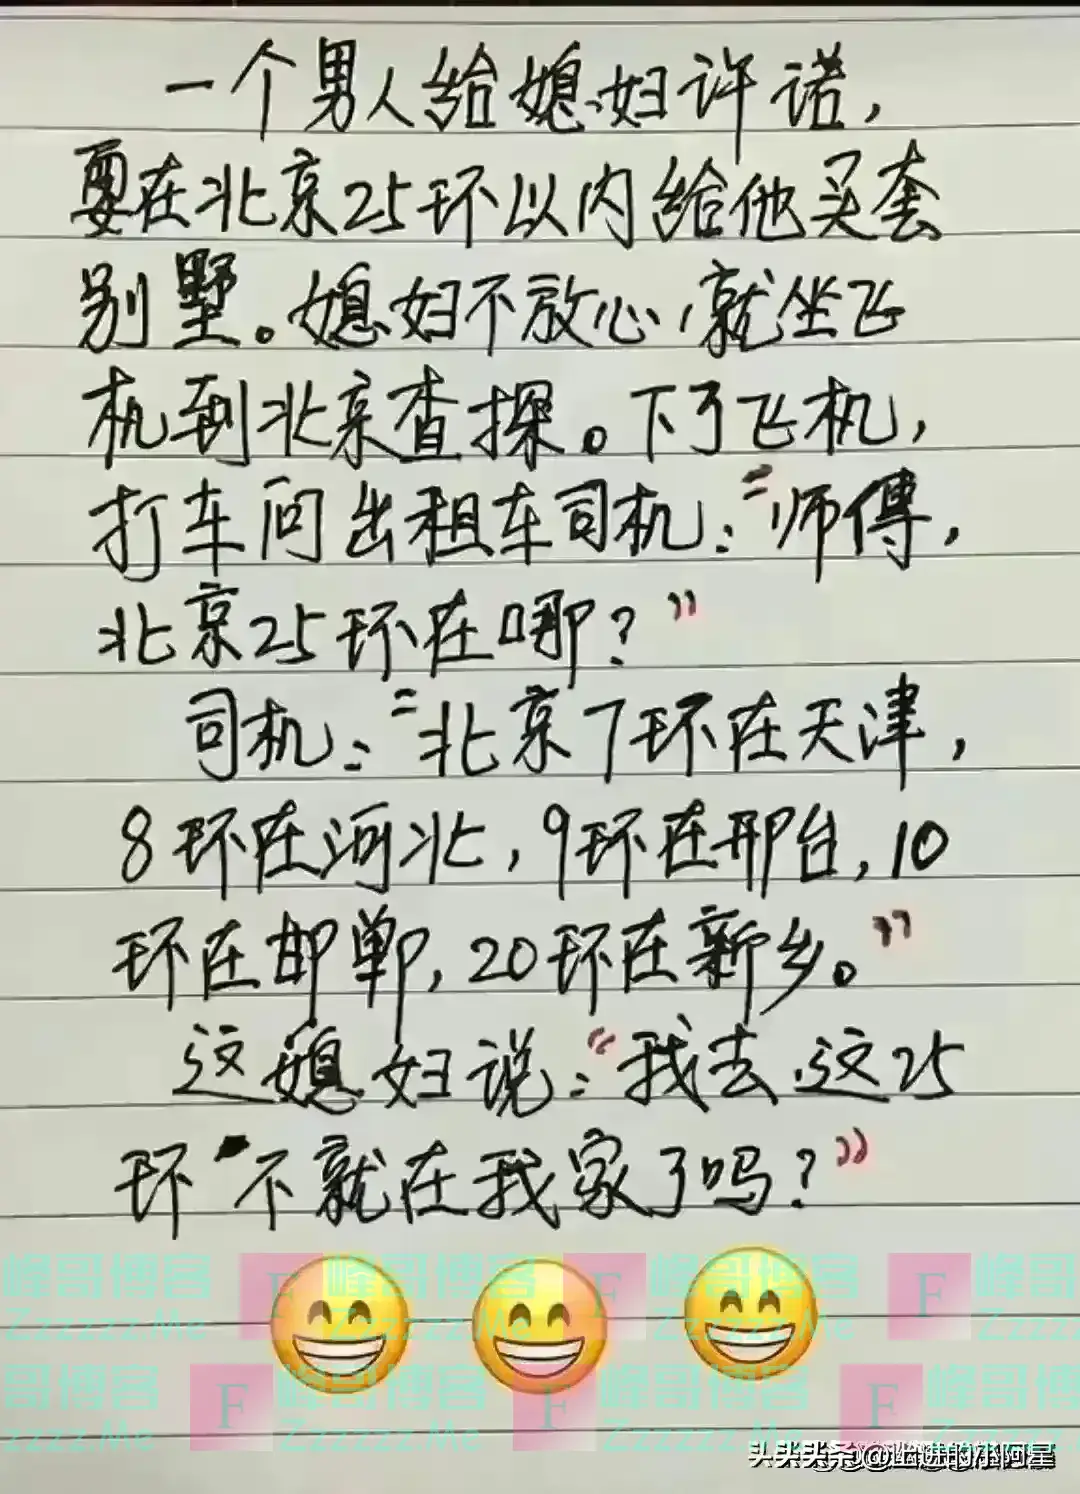 一个男人给媳妇许诺，
要在北京25环以内给他买套
别墅。媳妇不放心，就坐飞
机到北京查探。下了飞机，
打车问出租车司机：“师傅，
北京25环在哪？”
司机：“北京7环在天津，
8环在河北，9环在邢台，10
环在邯郸，20环在新乡。”
这媳妇说：“我去，这25
环不就在我家了吗？”
峰哥博客 F 峰哥博客 F 峰哥博客 F 峰哥
Zzzzzz.Me Zzzzzz.Me Zzzzzz.Me Zzzzz
哥博客 F 峰哥博客 F 峰哥博客 F 峰哥博
zzzz.Me Zzzzzz.Me Zzzzzz.Me Zzzzzz
头条 @上进的小阿星